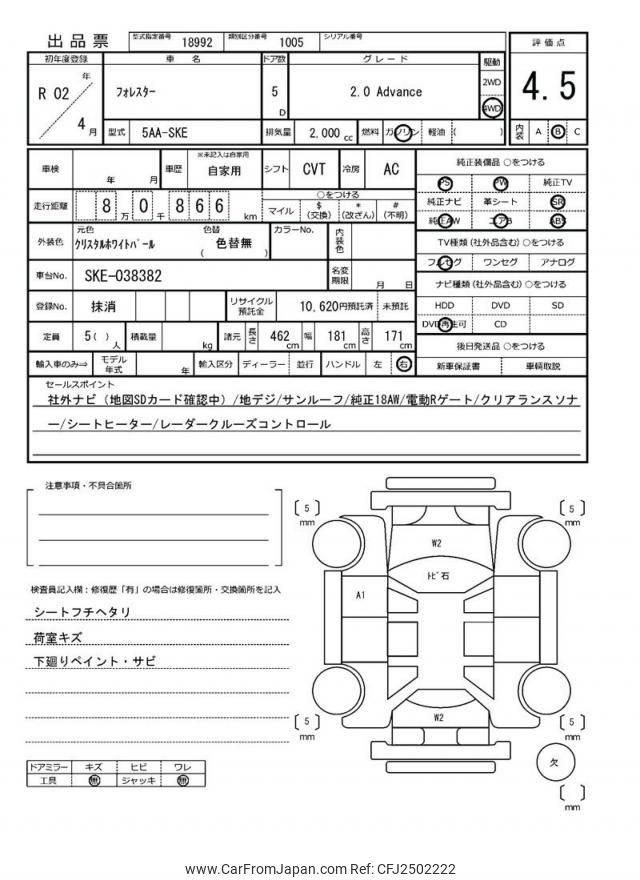 出品票
型式指定番号 18992 類別区分番号 1005 シリアル番号
初年度登録 車名 ドア数 グレード 駆動 評価点
R 02 年 4 月 フォレスター 5 D 2.0 Advance 2WD 4WD 4.5
型式 5AA-SKE 排気量 2,000 cc 燃料 ガソリン 軽油 ( ) 内装 A B C
車検 年 月 車歴 ※未記入は自家用 自家用 シフト CVT 冷房 AC
走行距離 8 万 0 千 8 6 6 km ○をつける
マイル $ (交換) * (改ざん) # (不明)
外装色 元色 クリスタルホワイトパール 色替 ( 色替無 ) カラーNo. 内装色
車台No. SKE-038382 名変期限 月 日
登録No. 抹消 リサイクル預託金 10,620円預託済 未預託
定員 5( ) 人 積載量 kg 諸元 長さ 462 cm 幅 181 cm 高さ 171 cm
輸入車のみ⇒ モデル年式 年 輸入区分 ディーラー 並行 ハンドル 左 右
純正装備品 ○をつける
PS PW 純正TV
純正ナビ 革シート SR
純正AW エアB ABS
TV種類(社外品含む)○をつける
フルセグ ワンセグ アナログ
ナビ種類(社外品含む)○をつける
HDD DVD SD
DVD再生可 CD
後日発送品 ○をつける
新車保証書 車輌取説
セールスポイント
社外ナビ(地図SDカード確認中)/地デジ/サンルーフ/純正18AW/電動Rゲート/クリアランスソナ
ー/シートヒーター/レーダークルーズコントロール
注意事項・不具合箇所
検査員記入欄:修復歴「有」の場合は修復箇所・交換箇所を記入
シートフチヘタリ
荷室キズ
下廻りペイント・サビ
ドアミラー キズ ヒビ ワレ
工具 無 ジャッキ 無
[ 5 ] mm
[ 5 ] mm
W2
トビ石
A1
W2
[ 5 ] mm
[ 5 ] mm
欠
[ ] mm
www.CarFromJapan.com Ref: CFJ2502222